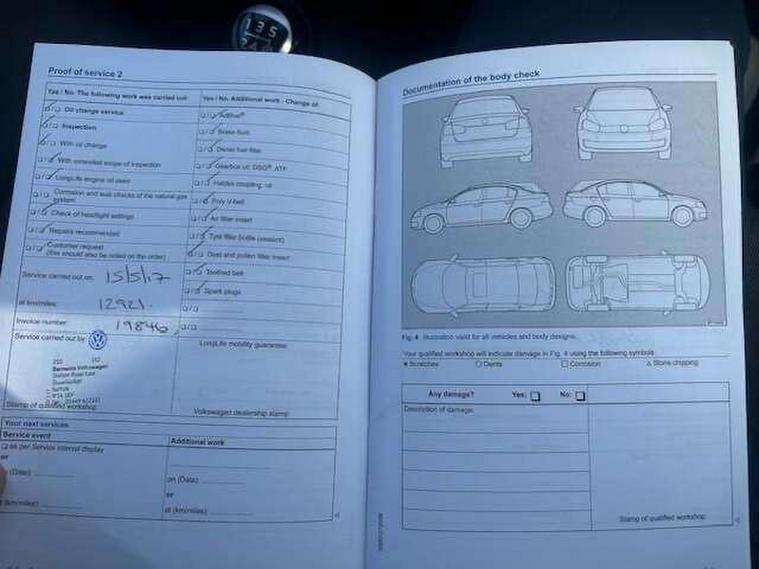 1 3 5
Proof of service 2
Yes / No: The following work was carried out:
Oil change service
Inspection
With oil change
With extended scope of inspection
LongLife engine oil used
Corrosion and leak checks of the natural gas
system
Check of headlight settings
Repairs recommended
Customer request
(this should also be noted on the order)
Service carried out on: 15/5/17
at km/miles: 12921.
Invoice number: 19846
Service carried out by
Barnwells Volkswagen
Station Road East
Stowmarket
Suffolk
Stamp of qualified workshop
Yes / No: Additional work - Change of:
AdBlue®
Brake fluid
Diesel fuel filter
Gearbox oil: DSG®, ATF
Haldex coupling: oil
Poly V-belt
Air filter insert
Tyre filler bottle (sealant)
Dust and pollen filter insert
Toothed belt
Spark plugs
LongLife mobility guarantee
Volkswagen dealership stamp
Your next services
Service event
Additional work
as per Service interval display
or
(Date):
(km/miles):
on (Date):
or
at (km/miles):
Documentation of the body check
Fig. 4 Illustration valid for all vehicles and body designs.
Your qualified workshop will indicate damage in Fig. 4 using the following symbols
Scratches
Dents
Corrosion
Stone chipping
Any damage? Yes: No:
Description of damage:
Stamp of qualified workshop